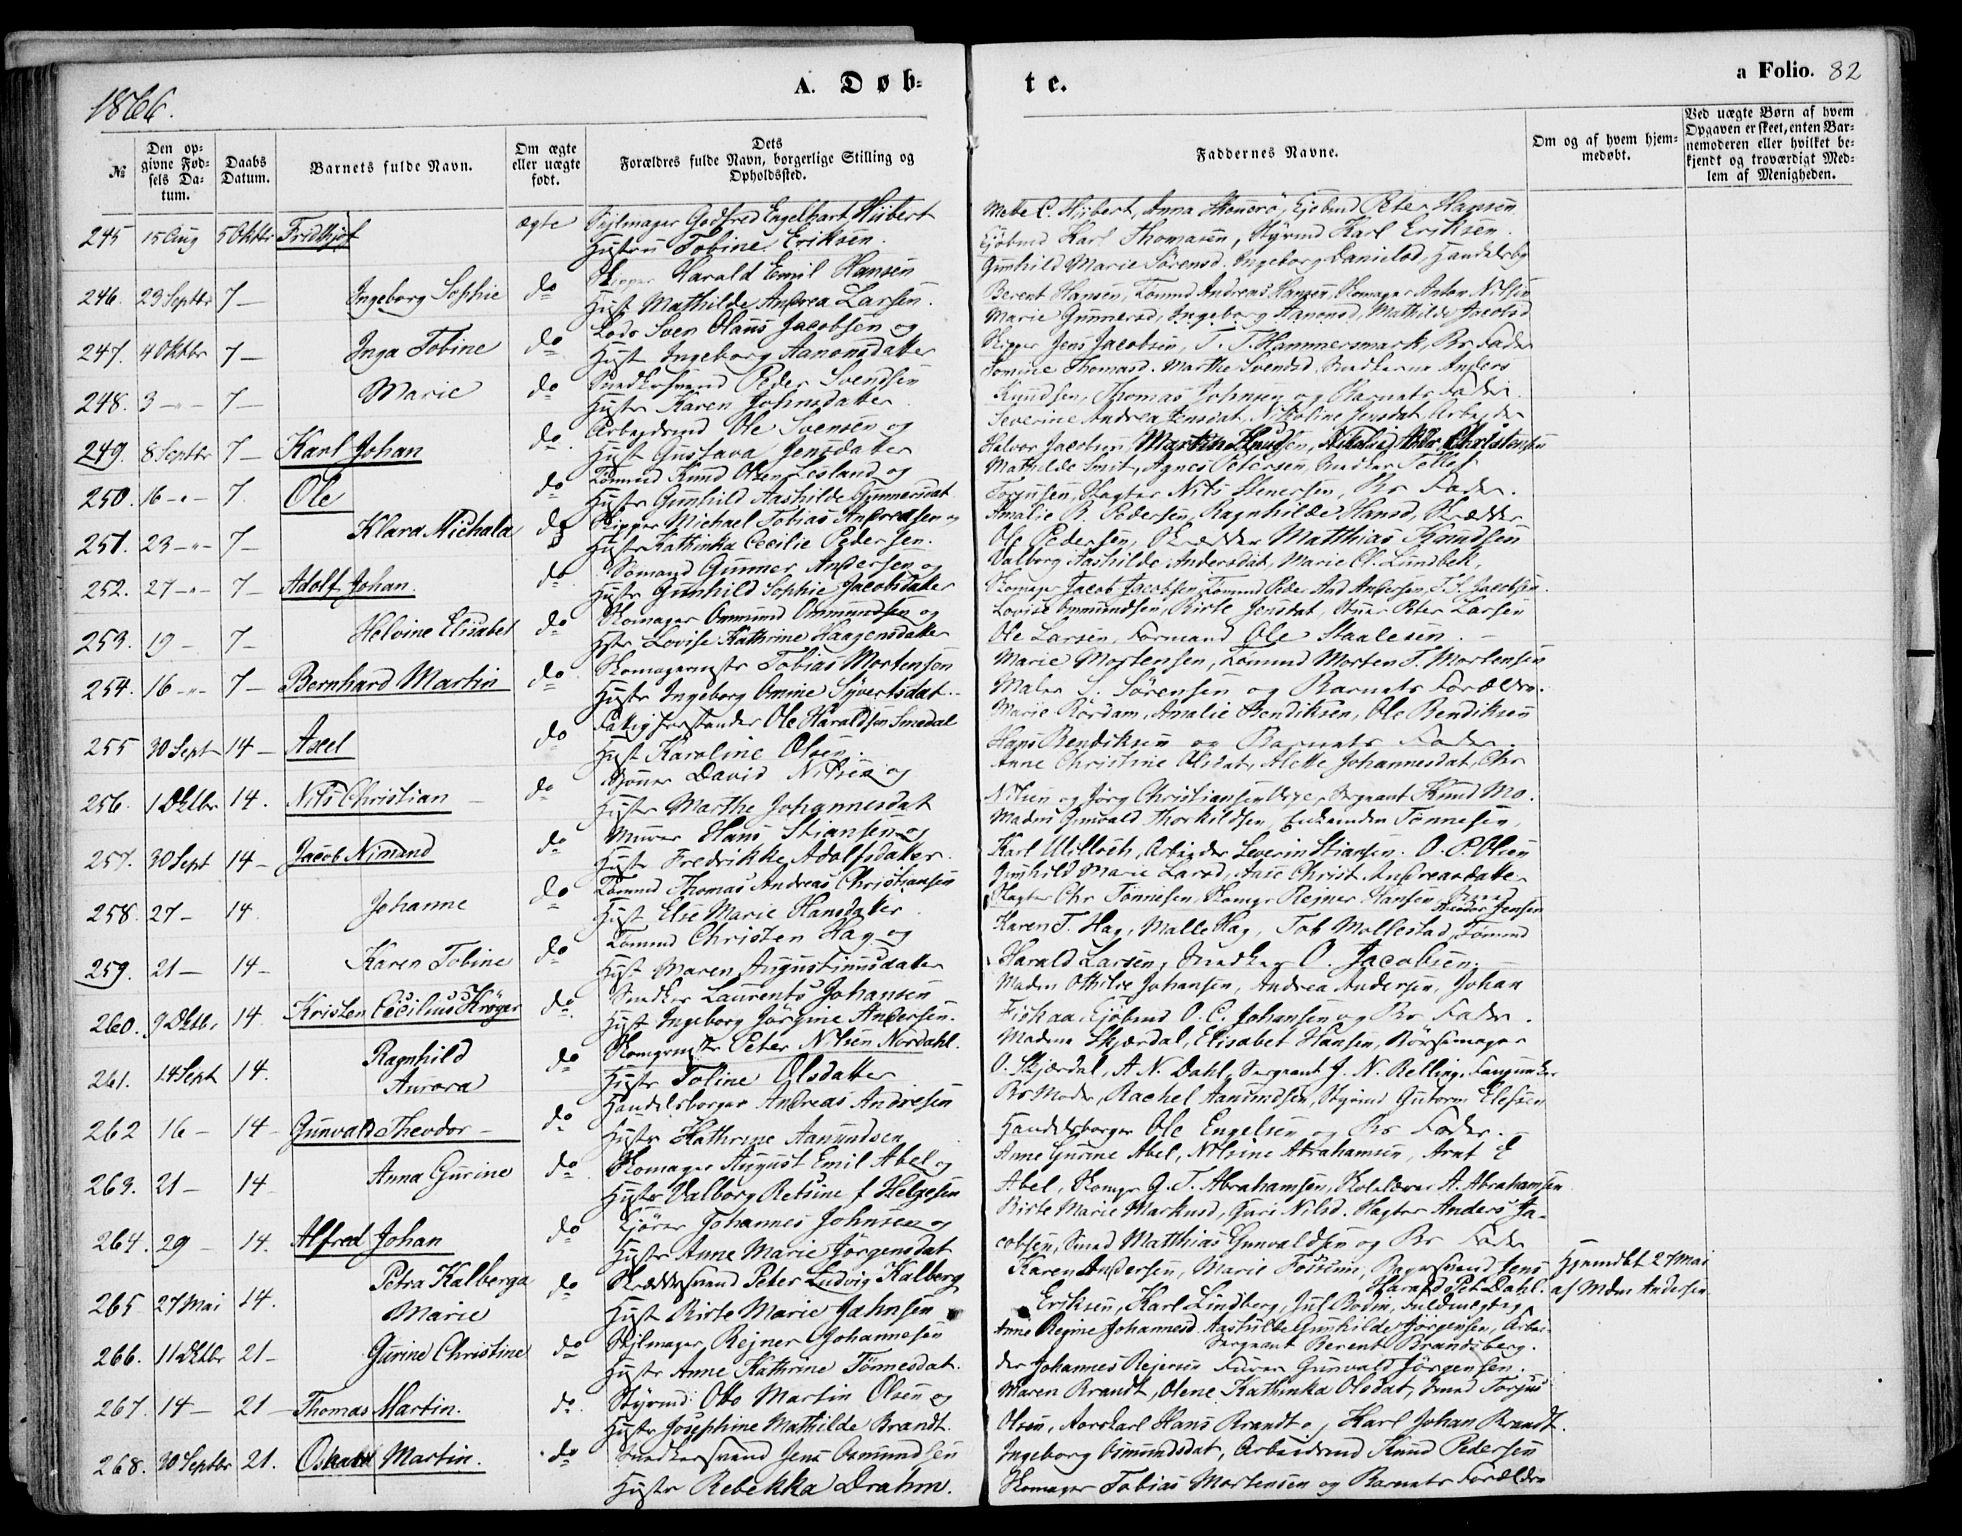 1866.
A. Døb-
te.
a Folio. 82
№
Den op-
givne Fød-
sels Da-
tum.
Daabs
Datum.
Barnets fulde Navn.
Om ægte
eller uægte
født.
Dets
Forældres fulde Navn, borgerlige Stilling og
Opholdssted.
Faddernes Navne.
Om og af hvem hjem-
medøbt.
Ved uægte Børn af hvem
Opgaven er skeet, enten Bar-
nemoderen eller hvilket be-
kjendt og troværdigt Med-
lem af Menigheden.
245 15 Aug 5 Oktbr Fridthjof ægte Sejlmager Godfred Engelhart Hübert
Hustru Tobine Eriksen.
Mette C. Hübert, Anna, Ejobmd Peter Hansen
Ejobmd Karl Thomasen, Styrmd Karl Eriksen.
246. 23 Septbr 7 — Ingeborg Sophie do Skipper Harald Emil Hansen
Hust Mathilde Andrea Larsen.
Gunhild Marie Sørensd. Ingeborg Danielsd, Handelsbg
Berent Hansen, Tømmd Andreas Hansen, Skomager Anton Nilsen
247. 4 Oktbr 7 — Inga Tobine do Lods Sven Olaus Jacobsen og
Hust Ingeborg Aanonsdatter
Marie Gunnersd, Ingeborg Aanonsd, Mathilde Jacobsd
Skipper Jens Jacobsen, T. T. Hammersmark, Bs Fader
248. 3 -"- 7 — Marie do Snedkersvend Peder Svendsen
Hustr Karen Johnsdatter
Tomine Thomasd. Marthe Svendsd. Snedkerne Anders
Knudsen, Thomas Johnsen og Barnets Fader.
249. 8 Septbr 7 — Karl Johan do. Arbejdsmd Ole Svensen og
Hust Gustava Jensdatter
Severine Andrea Jensdat, Nikoline Jensdat, Arbejder
Halvor Jacobsen, Martin Knudsen, Christensen
250. 16 -"- 7. Ole do Tømmd Knud Olsen Lesland og
Hustr Gunhild Aashilde Gunnersdat
Mathilde Smit, Agnes Petersen, Snedker Tellef
Torjusen, Slagter Nils Stenersen, Bs Fader.
251. 23 -"- 7 — Klara Michala do Skipper Michael Tobias Andreasen og
Hustr Kathinka Cecilie Pedersen.
Amalie B. Pedersen, Ragnhilde Hansd, Skrædder
Ole Pedersen, Skrædder Matthias Knudsen
252. 27 -"- 7 — Adolf Johan. do Sømand Gunner Andersen og
Hustr Gunhild Sophie Jacobsdatter
Valborg Aashilde Andersdat, Marie Cl. Lundbek,
Skomager Jacob Jacobsen, Tømmd Peder And Andersen, J. S. Jacobsen.
253. 19 - 7 — Helvine Elisabet do Skomager Ommund Ommundsen og
Hstr Lovise Kathrine Haagensdatter
Lovise Ommundsen, Birte Jensdat, Peter Larsen
Ole Larsen, Formand Ole Staalesen. —
254. 16 -"- 7 — Bernhard Martin do. Skomagermestr Tobias Mortensen
Hustr Ingeborg Omine Syvertsdat..
Marie Mortensen, Tømmd Morten T. Mortensen
Maler S. Sørensen og Barnets Forældre.
255 30 Sept 14 — Axel do Fattigforstander Ole Haraldsen Smedal
Hust Karoline Olsen.
Marie Rørdam, Amalie Bendiksen, Ole Bendiksen
Hans Bendiksen og Barnets Fader.
256. 1 Oktbr 14. Nils Christian do David Nilsen og
Hustr Marthe Johannesdat
Anne Christine Olsdat, Alette Johannesdat, Chr
Nilsen og Jørg Christiansen, Sergeant Knud Mo.
257. 30 Sept 14 — Jacob Nimand do Murer Hans Stiansen og
Hustr Fredrikke Adolfsdatter.
Madm Gunvald Thorkildsen, Enkemdm Tønnesen,
Karl Willoch, Arbejder Severin Stiansen. O. P. Olsen
258. 27 — 14. Johanne do Tømmd Thomas Andreas Christiansen
Hust Else Marie Hansdatter
Gunhild Marie Larsd, Anne Christ Andreasdatter
Slagter Chr Tønnesen, Skomgr Rejner Hansen,
Theodor Jensen
259. 21 — 14 — Karen Tobine do Tømmd Christen Hag og
Hust Maren Augustinusdatter
Karen T. Hag, Malle Hag, Tob Mollestad, Tømmd
Harald Larsen, Snedker O. Jacobsen.
260. 9 Oktbr 14. Kristen Cecilius Krøger do. Snedker Laurents Johansen
Hust Ingeborg Jørgine Andersen.
Madm Othilie Johansen, Andrea Andersen, Johan
Fiskaa, Ejobmd O. C. Johansen og Bs Fader.
261. 14 Sept 14. Ragnhild
Aurora do Skomgrmstr Peter Nilsen Nordahl.
Hustr Toline Olsdatter
Madme Skjærdal, Elisabet Hansen, Børsemager
O. Skjærdal, A. N. Dahl, Sergeant J. N. Relling,
262 16 — 14 — Gunvald Theodor — do Handelsborger Andreas Andresen
Hustr Kathrine Aanundsen
Bs Moder, Rachel Aanundsen, Styrmd Gutorm Elefsen
Handelsborger Ole Engelsen og Bs Fader.
263. 21 — 14 Anna Gurine do Skomager August Emil Abel og
Hustr Valborg Retsine f Helgesen
Anne Gurine Abel, Nilsine Abrahamsen, Arnt E
Abel, Skomgr G. T. Abrahamsen, A. Abrahamsen
264. 29 — 14. Alfred Johan do Kjører Johannes Johnsen og
Hustr Anne Marie Jørgensdat
Birte Marie Markusd, Guri Nilsd. Slagter Anders Ja-
cobsen, Smed Matthias Gunvaldsen og Bs Fader
265 27 Mai 14. Petra Kalberga
Marie do Skræddersvend Peter Ludvig Kalberg
Hust Birte Marie Jahnsen
Karen Andersen, Marie Fossum, Bagersvend Jens
Harald Pet Dahl.
Eriksen, Karl Lindberg, Jul Bodin, Fuldmegtig
Hjemdbt 27 Mai
af Mdm Andersen
266. 11 Oktbr 21 — Gurine Christine do Sejlmager Rejner Johannesen
Hustr Anne Kathrine Tønnesdat.
Anne Regine Johannesd. Aashilde Gunhilde Jørgensen, Arbei-
Sergeant Berent Brandsberg.
der Johannes Rejersen Furer Gunvald Jørgensen.
267. 14 — 21 — Thomas Martin. do. Styrmd Otto Martin Olsen og
Hustr Josephine Mathilde Brandt.
Maren Brandt, Olene Kathinka Olsdat, Smed Torjus
Olsen, Hans Brandt og Karl Johan Brandt.
268. 30 Septbr 21. Oskar Martin. do Snedkersvend Jens Osmundsen
Hustr Rebekka Drahm.
Ingeborg Osmundsdat, Arbeidsmd Knud Pedersen
Skomager Tobias Mortensen og Barnets Forældre